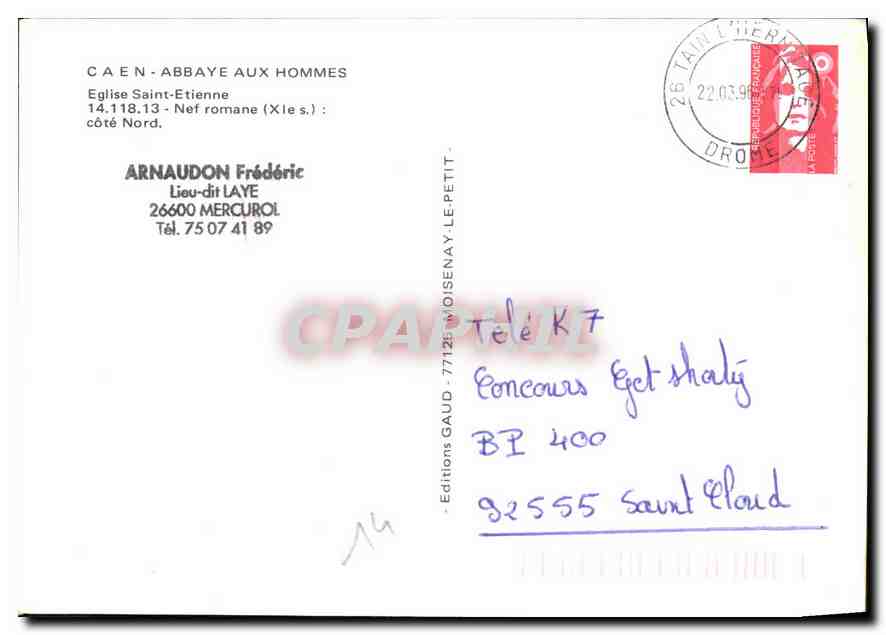 CAEN - ABBAYE AUX HOMMES
Eglise Saint-Etienne
14.118.13 - Nef romane (XIe s.) :
côté Nord.
ARNAUDON Frédéric
Lieu-dit LAYE
26600 MERCUROL
Tél. 75 07 41 89
- Editions GAUD - 77126 MOISENAY-LE-PETIT -
26 TAIN L'HERMITAGE
22.03.96
DROME
REPUBLIQUE FRANÇAISE
LA POSTE
CPAPHIL
Télé K 7
Concours Get shorty
BP 400
92555 Saint Cloud
14